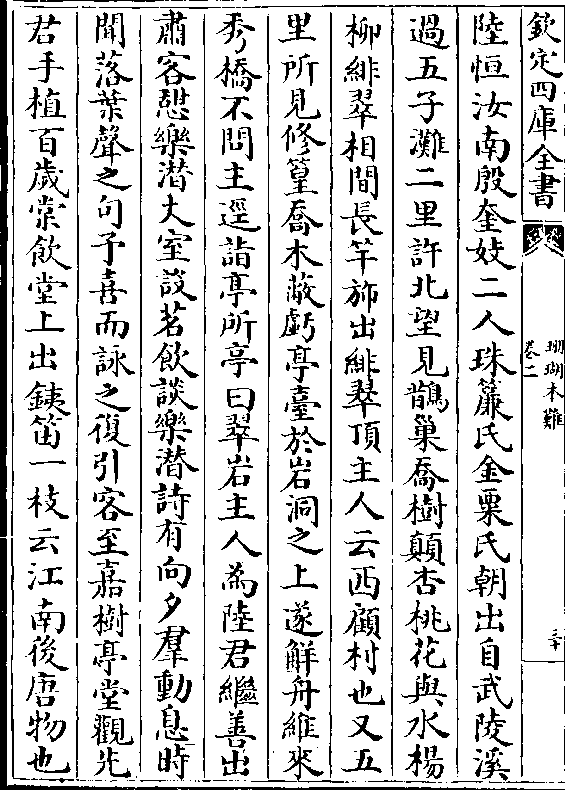 欽定四庫全書
珊瑚木難
卷二
三十
陸恒汝南殷奎妓二人珠簾氏金粟氏朝出自武陵溪
過五子灘二里許北望見鵲巢喬樹顛杏桃花與水楊
柳緋翠相間長竿斾出緋翠頂主人云西顧村也又五
里所見修篁喬木蔽虧亭臺於岩洞之上遂解舟維來
秀橋不問主逕詣亭所亭曰翠岩主人為陸君繼善出
肅客憇樂潜大室設茗飲談樂潜詩有向夕羣動息時
聞落葉聲之句予喜而詠之復引客至嘉樹亭堂觀先
君手植百歲棠飲堂上出鐵笛一枝云江南後唐物也